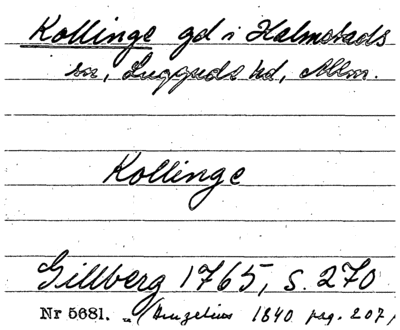 Kollinge gd i Halmstads
sn, Luggude hd, Mlm.
Kollinge
Gillberg 1765, s. 270
Nr 5681. " (Bruzelius 1840 pag. 207)